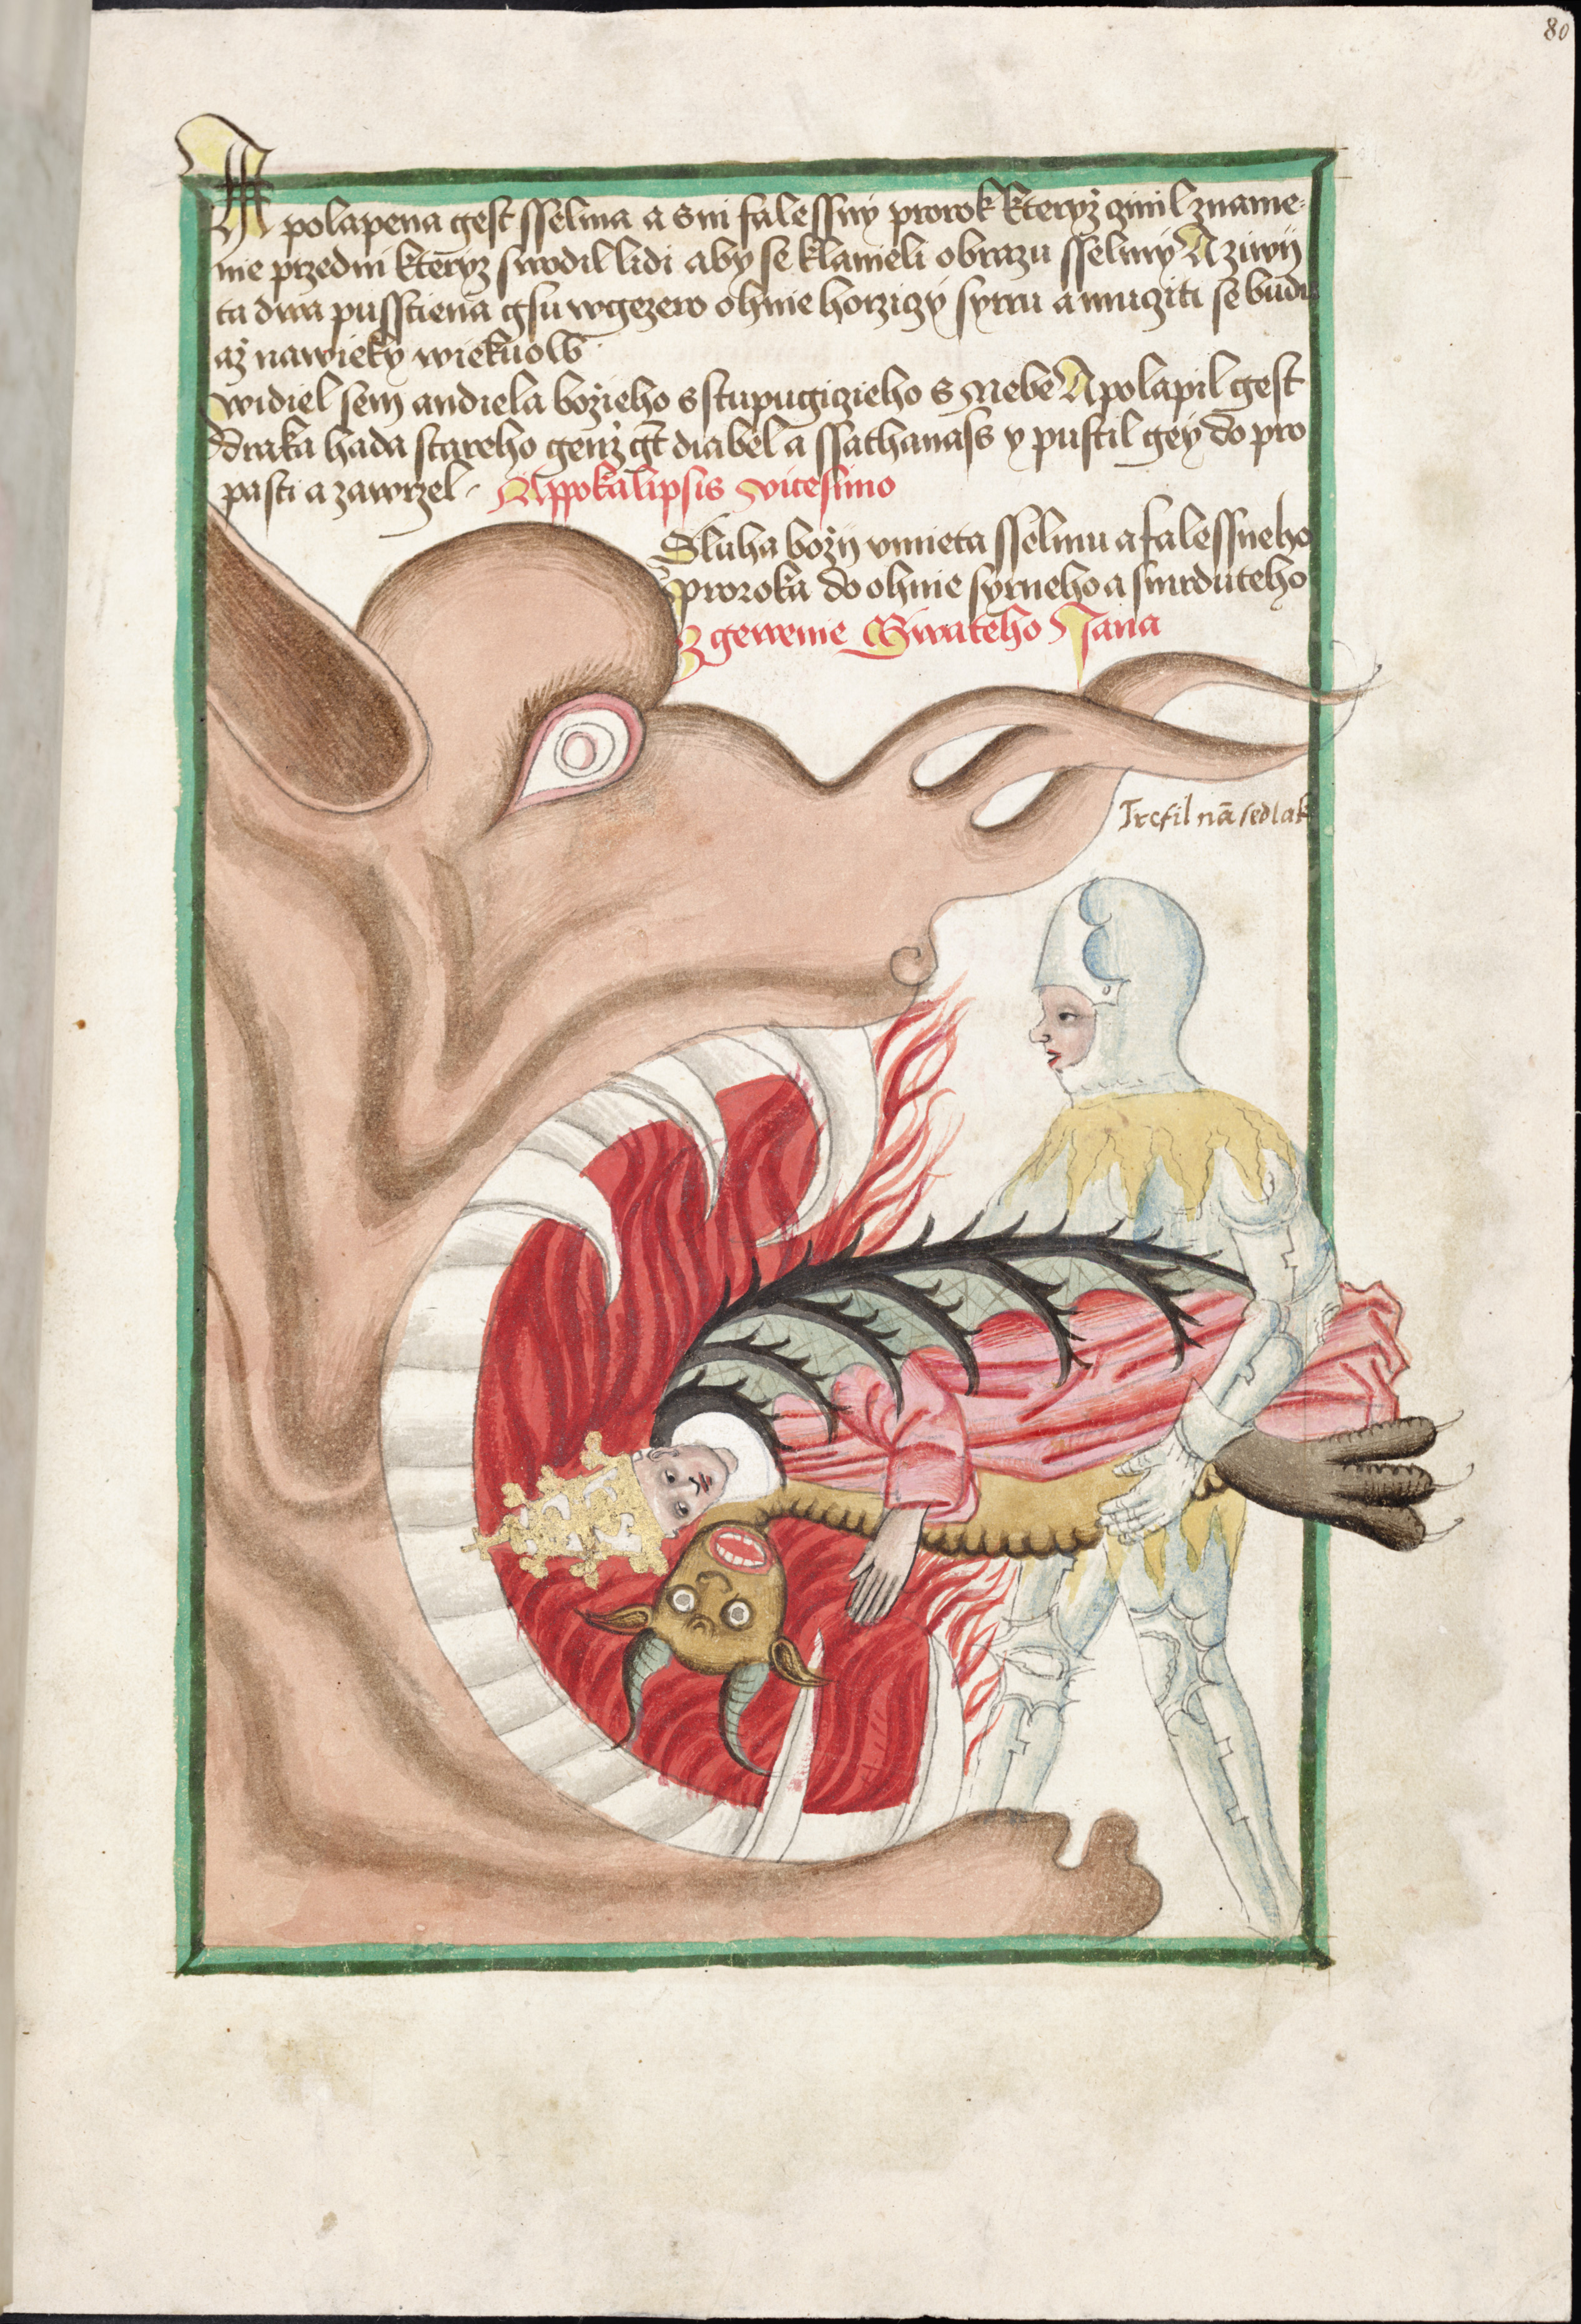 80
A polapena gest sselma a s ni falessny prorok kteryž činil zname-
nie przedni kteryz swodil lidi aby se klanieli obrazu sselmy A ziwij
ta dwa pusstiena gsu w gezero ohnie horziczy syrru a mučiti se budu
až nawieky wiekuow
widiel sem andiela božieho sstupugiczieho s Nebe A polapil gest
draka hada stareho genž gt diabel a ssathanass y pustil gey do pro
pasti a zawrzel Appokalipsis vicesimo
Sluha božij vmieta sselmu a falessneho
proroka do ohnie syrneho a smrduteho
Z gewenie Swateho Jana
Trefil nā sedlak